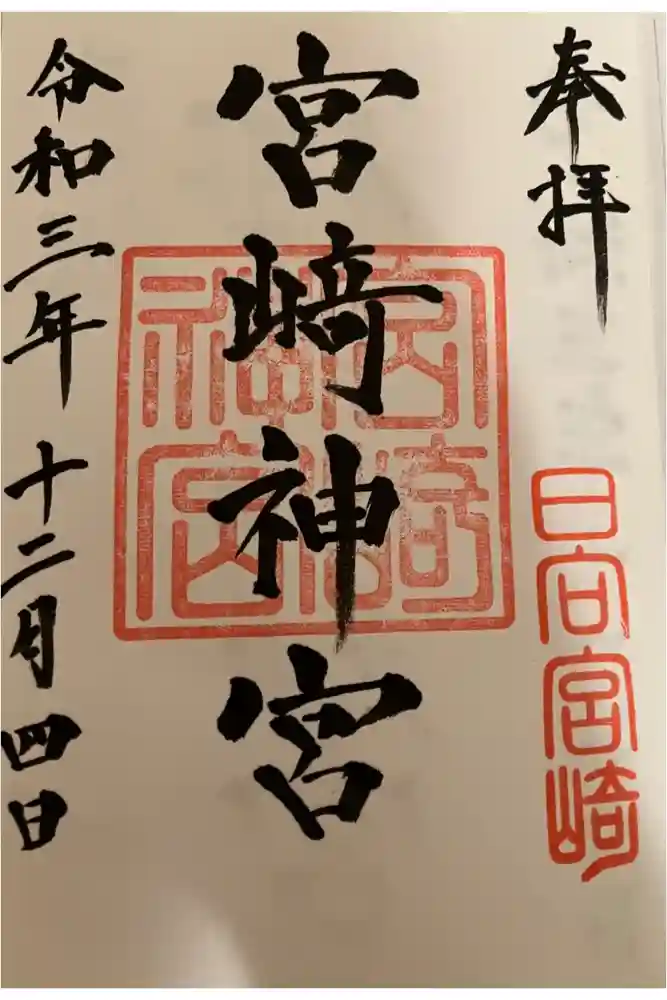 奉拝
日向宮崎
宮崎神宮
宮崎神宮
令和三年十二月四日